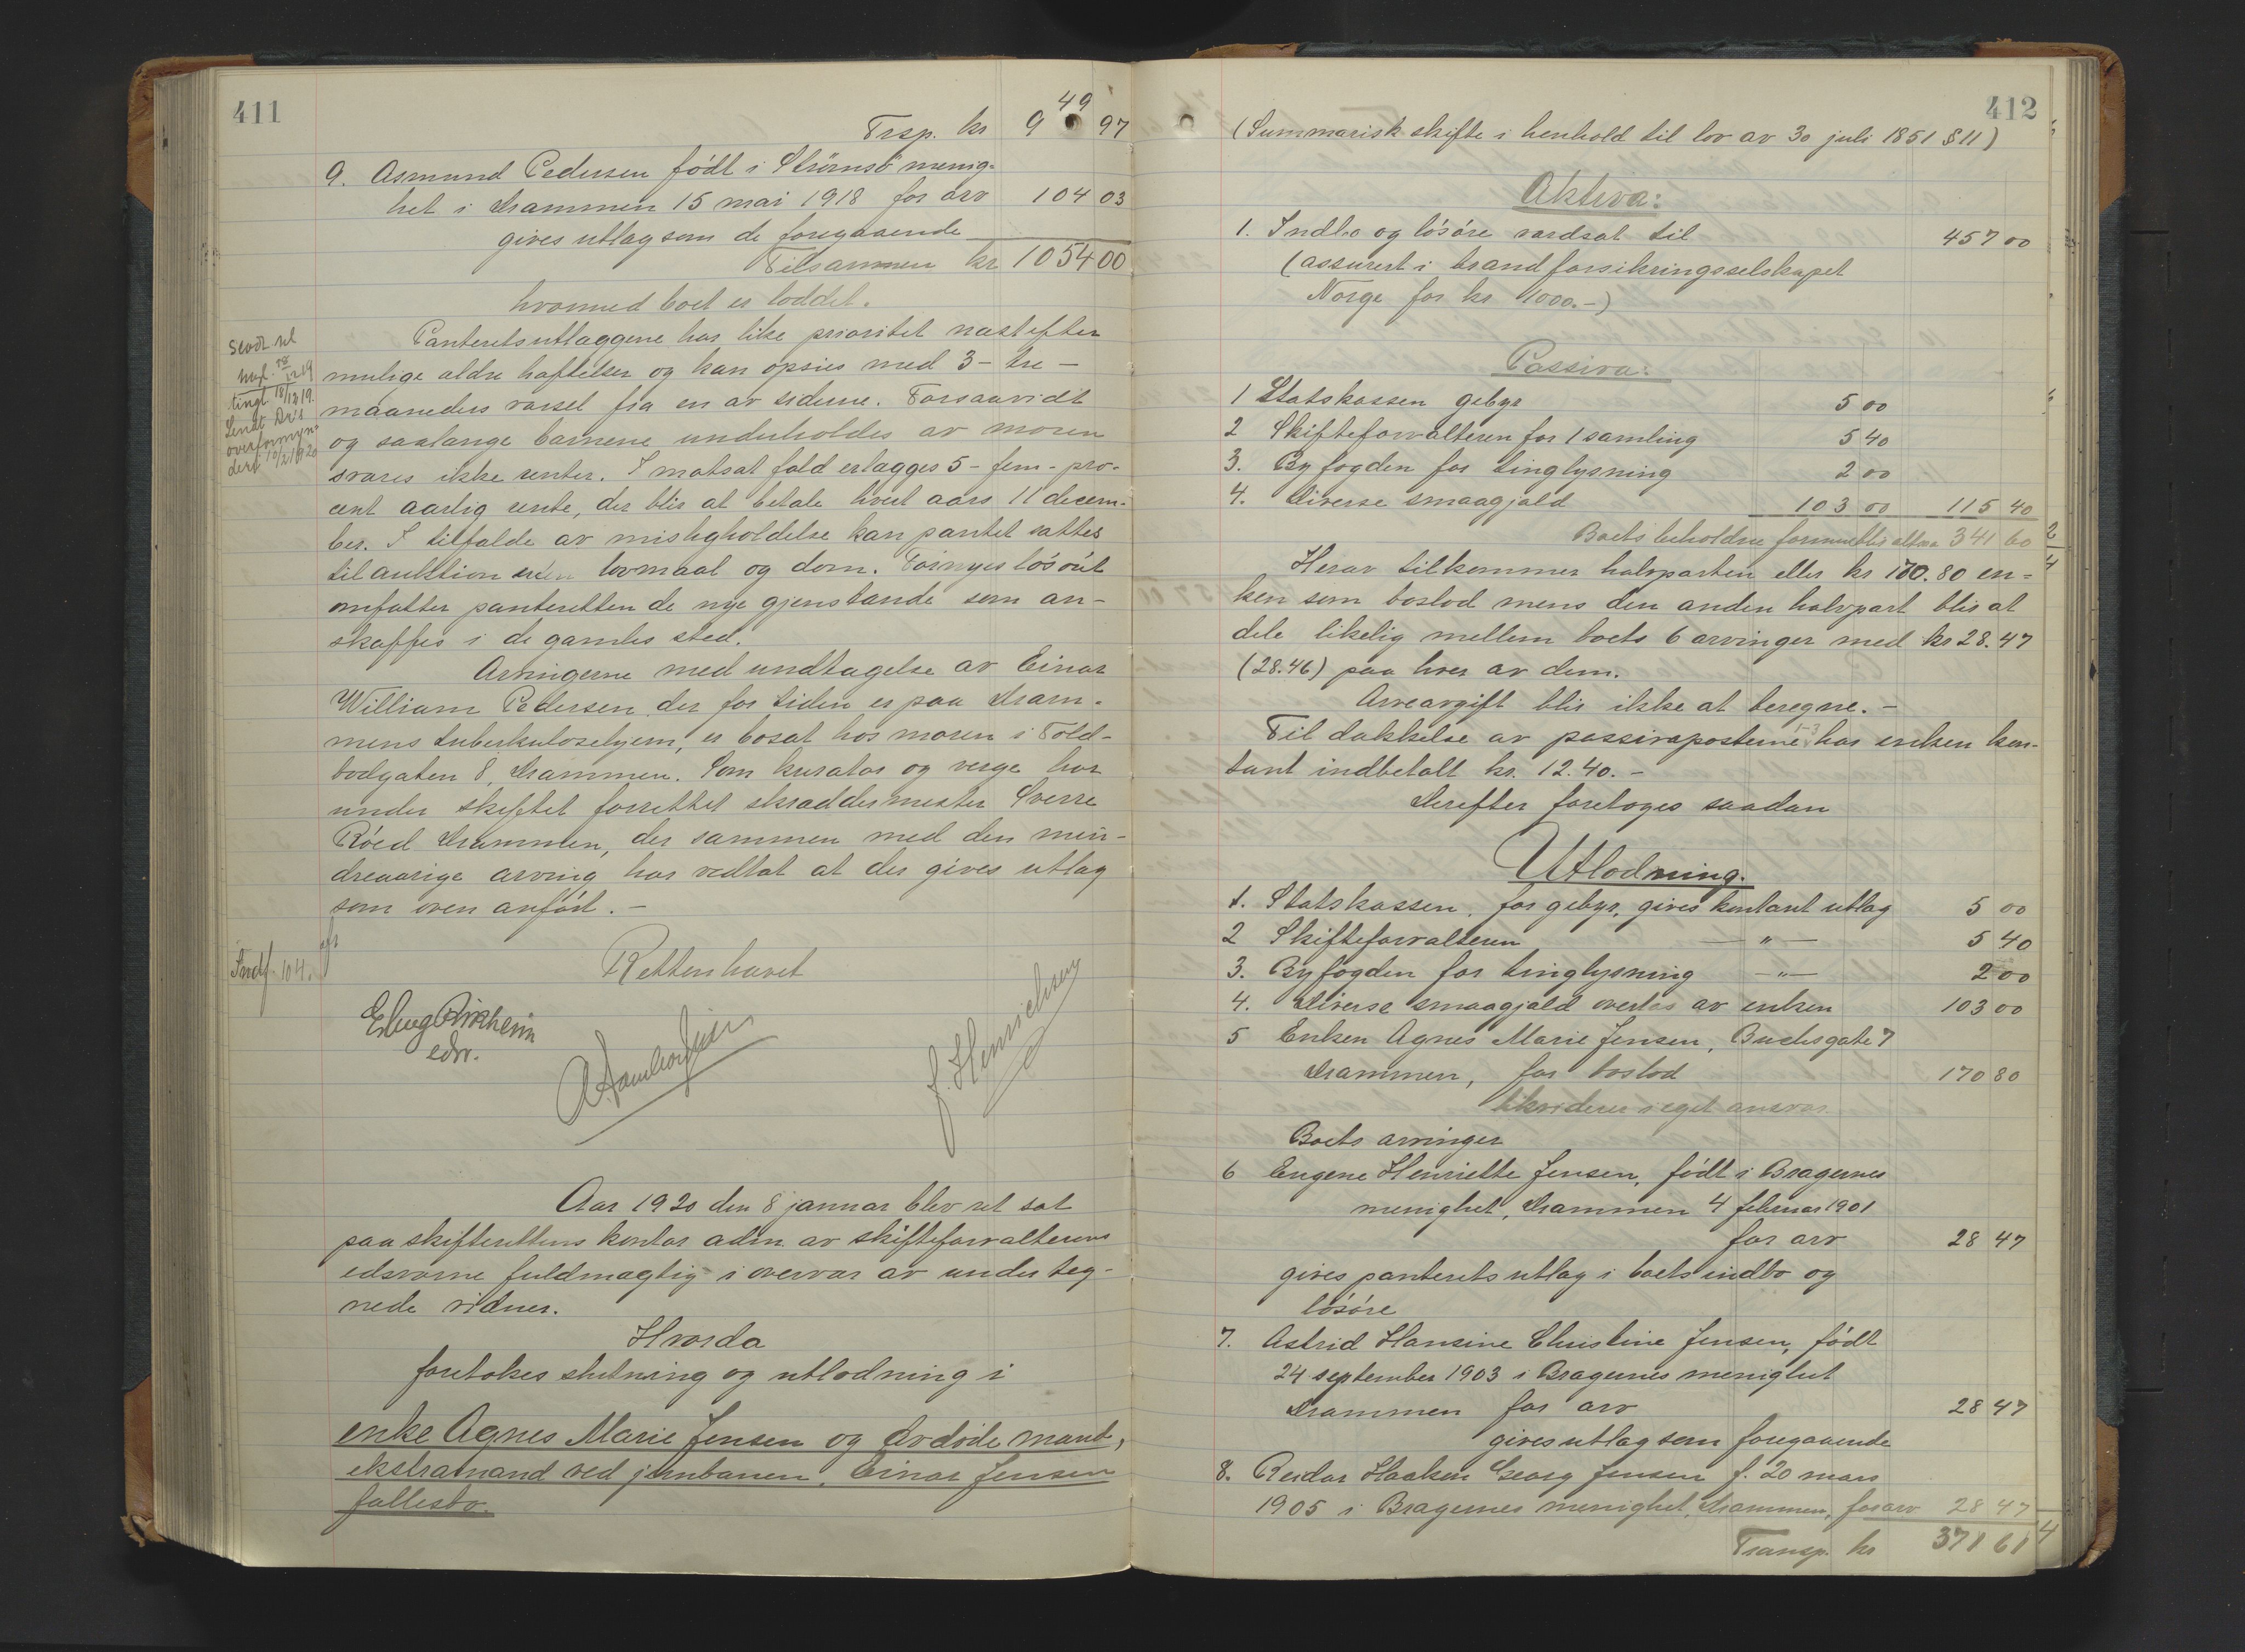 411
Trsp. kr 949 97
9. Asmund Pedersen født i Strömsö menig-
het i Drammen 15 mai 1918 for arv 104 03
gives utlæg som de foregaaende
Tilsammen kr 1054 00
hvormed boet er loddet.
Panteretsutlæggene har like prioritet næst efter
mulige ældre hæftelser og kan opsies med 3 - tre -
maaneders varsel fra en av siderne. Forsaavidt
og saalænge barnene underholdes av moren
svares ikke renter. I motsat fald erlægges 5 - fem - pro-
cent aarlig rente, der blir at betale hvert aars 11 decem-
ber. I tilfælde av misligholdelse kan pantet sættes
til auktion uten lovmaal og dom. Fornyes lösöret
omfatter panteretten de nye gjenstande som an-
skaffes i de gamles sted.
Arvingerne med undtagelse av Einar
William Pedersen der for tiden er paa Dram-
mens tuberkulosehjem, er bosat hos moren i Told-
bodgaten 8, Drammen. Som kurator og verge har
under skiftet forrettet skræddermester Sverre
Röed Drammen, der sammen med den min-
dreaarige arving har vedtat at der gives utlæg
som oven anført. -
tingl. 18/12 19.
Sendt Dr's
overformyn-
deri 10/2 1920
Indf. 104.
Retten hævet
edsv.
J. Henrichsen
Aar 1920 den 8 januar blev ret sat
paa skifterettens kontor adm. av skifteforvalterens
edsvorne fuldmægtig i overvær av underteg-
nede vidner.
Hvorda
foretokes slutning og utlodning i
enke Agnes Marie Jensen og avdøde mand,
ekstramand ved jernbanen, Einar Jensen
fællesbo.
412
(Summarisk skifte i henhold til lov av 30 juli 1851 § 11)
Aktiva:
1. Indbo og lösöre værdsat til 457 00
(assurert i brandforsikringsselskapet
Norge for kr 1000.-)
Passiva:
1 Statskassen gebyr 5 00
2 Skifteforvalteren for 1 samling 5 40
3. Byfogden for tinglysning 2 00
4. Diverse smaagjæld 103 00 115 40
Boets beholdne formue blir altsaa 341 60
Herav tilkommer halvparten eller kr 170.80 en-
ken som boslod mens den anden halvpart blir at
dele likelig mellem boets 6 arvinger med kr 28.47
(28.46) paa hver av dem.
Arveavgift blir ikke at beregne. -
Til dækkelse av passivaposterne 1-3 har enken kon-
tant indbetalt kr. 12.40. -
Derefter foretoges saadan
Utlodning.
1. Statskassen, for gebyr, gives kontant utlæg 5 00
2 Skifteforvalteren — " — 5 40
3. Byfogden for tinglysning — " — 2 00
4. Diverse smaagjæld overtas av enken 103 00
5 Enken Agnes Marie Jensen, Buchsgate 7
Drammen, for boslod 170 80
likviderer i eget ansvar
Boets arvinger
6 Eugene Henriette Jensen, født i Bragernes
menighet, Drammen 4 februar 1901
for arv 28 47
gives panteretsutlæg i boets indbo og
lösöre
7. Astrid Hansine Christine Jensen, født
24 september 1903 i Bragernes menighet
Drammen for arv 28 47
gives utlæg som foregaaende
8. Reidar Haakon Georg Jensen f. 20 mars
1905 i Bragernes menighet, Drammen, for arv 28 47
Transp. kr 371 61